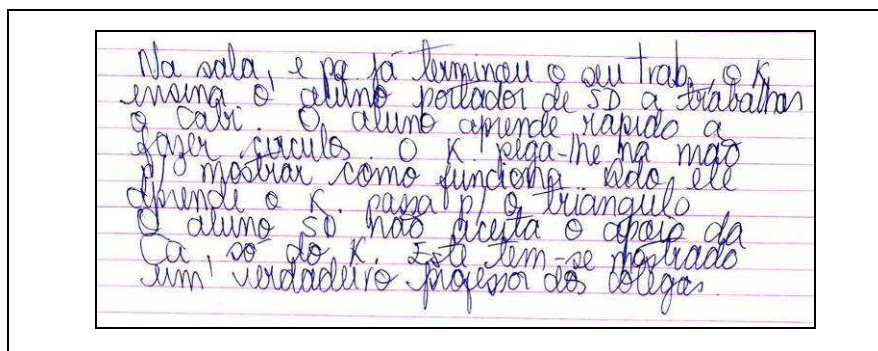 Na sala, e pq já terminou o seu trab, o K,
ensina o aluno portador de SD a trabalhar
o Cabri. O aluno aprende rápido a
fazer círculos. O K. pega-lhe na mão
p/ mostrar como funciona. ele
aprende o K. passa p/ o triângulo
O aluno SD não aceita o apoio da
Ca, só do K. Este tem-se mostrado
um verdadeiro professor dos colegas.